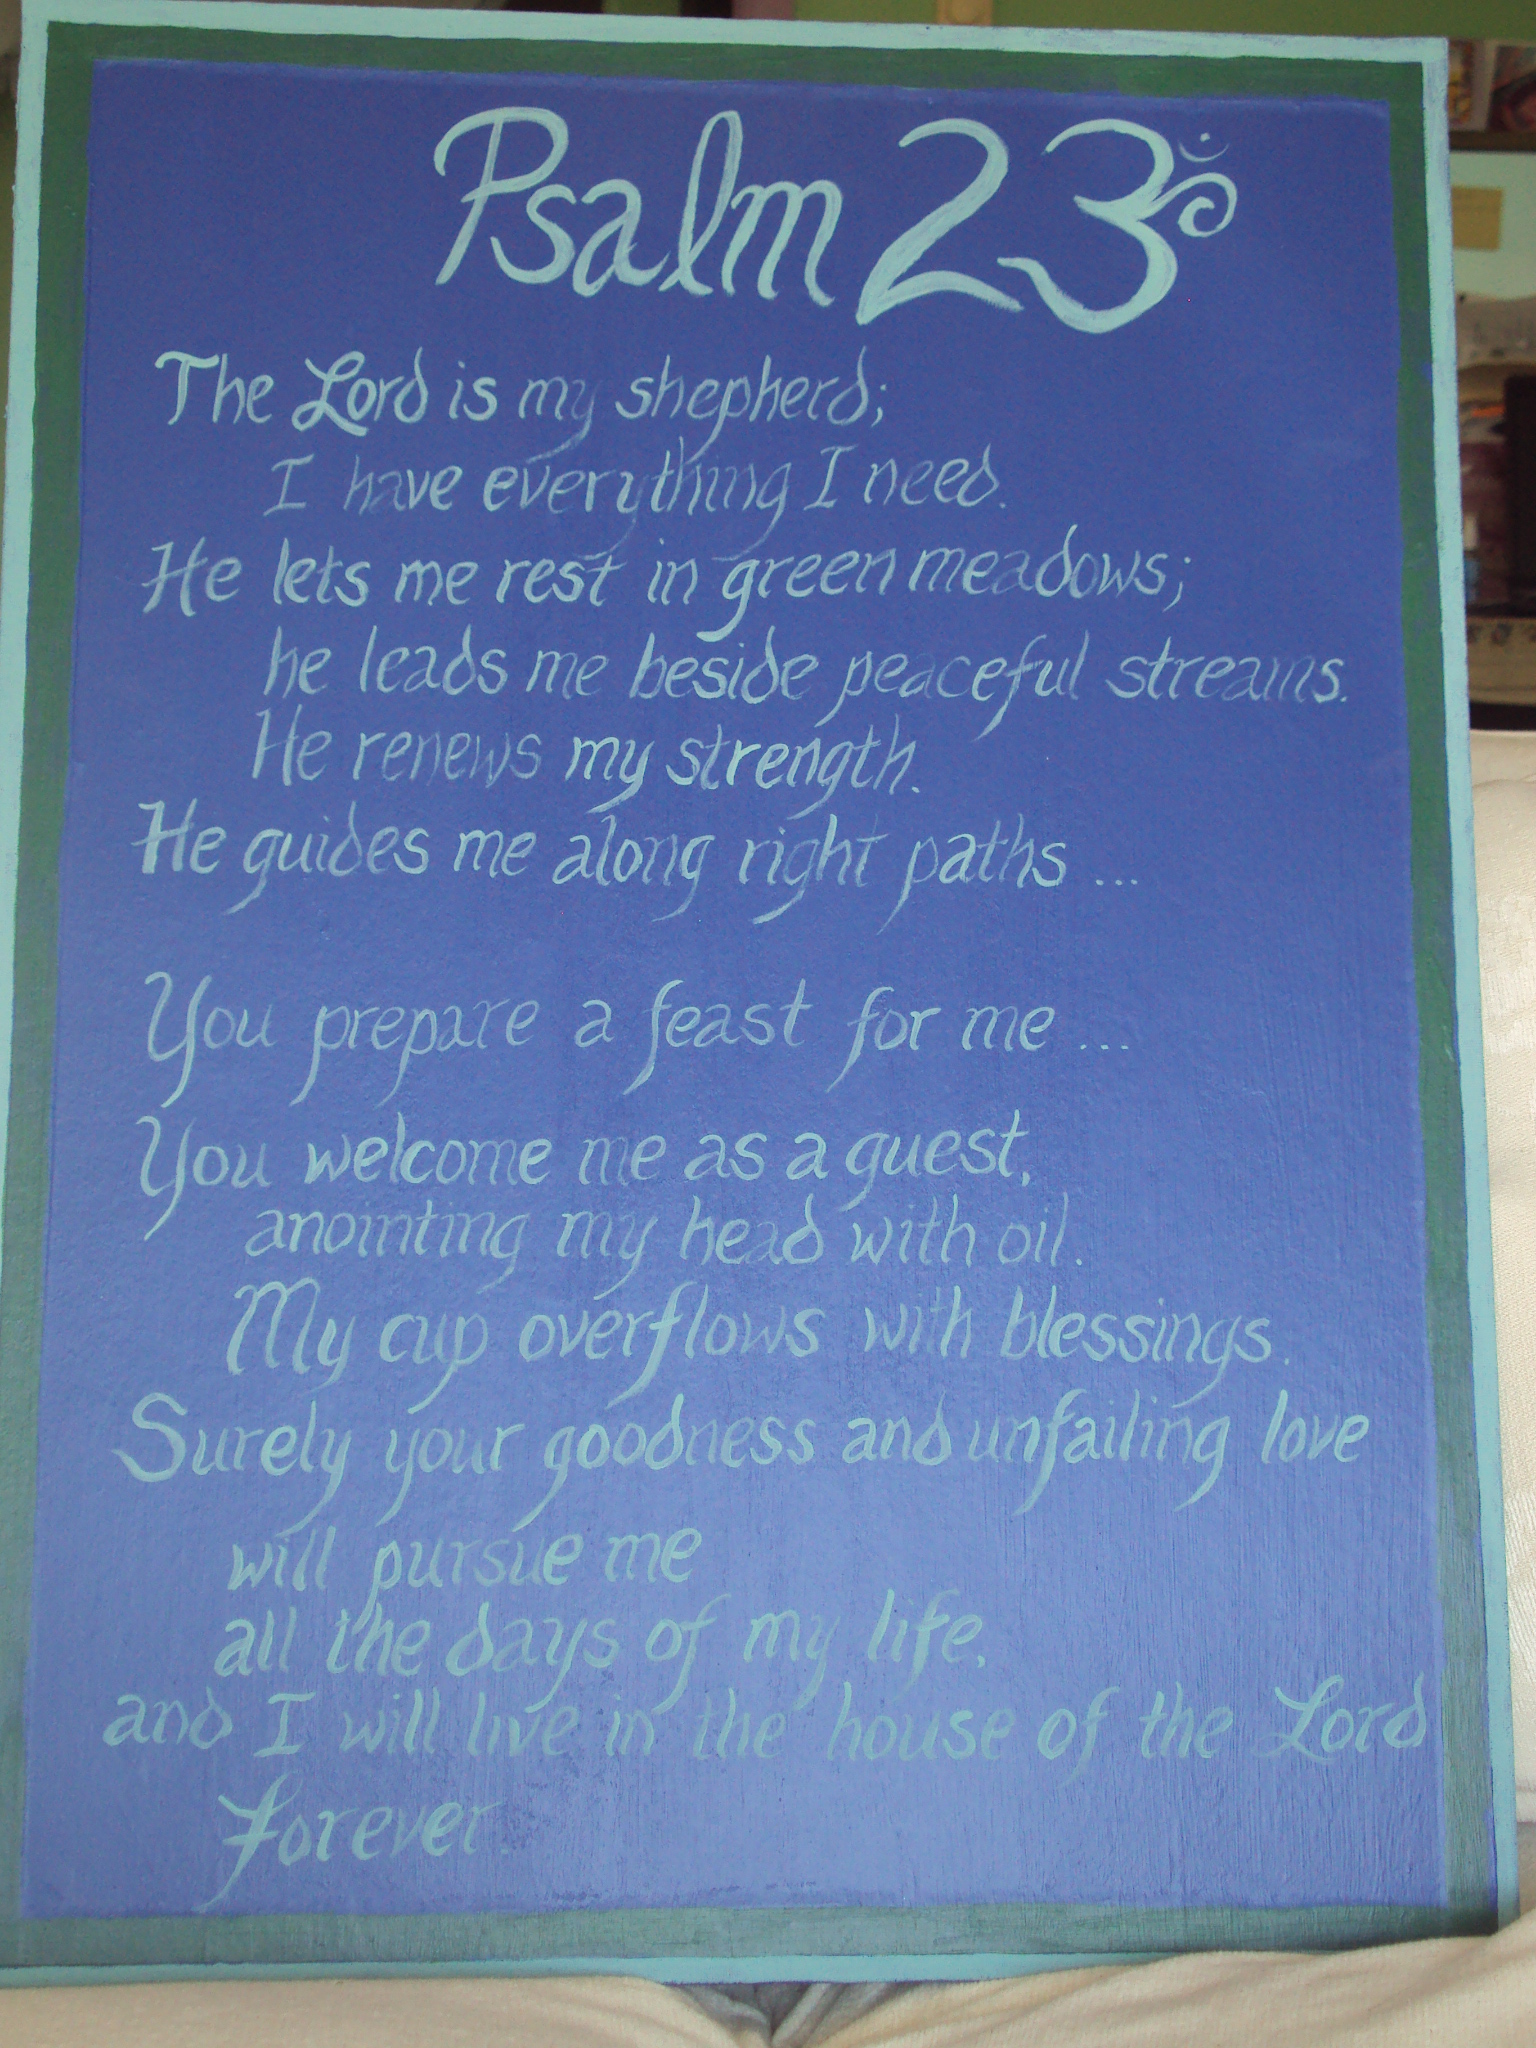 Psalm 23
The Lord is my shepherd;
I have everything I need.
He lets me rest in green meadows;
he leads me beside peaceful streams.
He renews my strength.
He guides me along right paths ...
You prepare a feast for me ...
You welcome me as a guest,
anointing my head with oil.
My cup overflows with blessings.
Surely your goodness and unfailing love
will pursue me
all the days of my life,
and I will live in the house of the Lord
Forever.